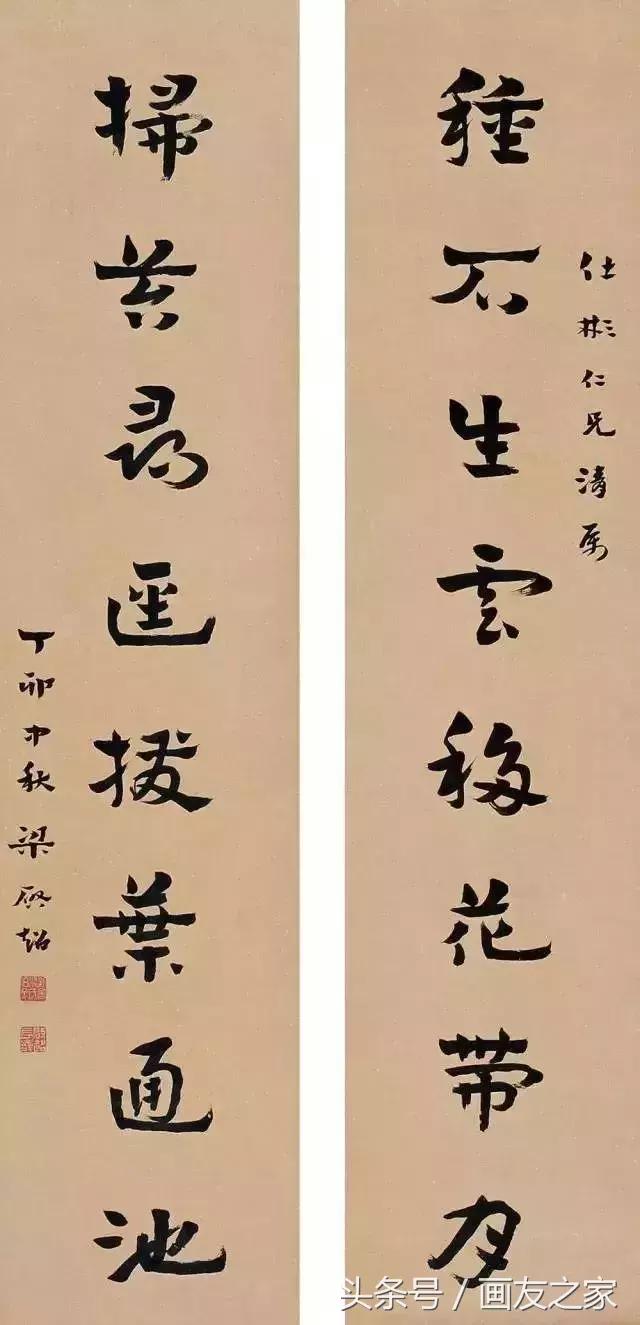 仕彬仁兄清属
種石生雲移花帶月
掃苔尋逕撥葉通池
丁卯中秋梁啟超
头条号 / 画友之家